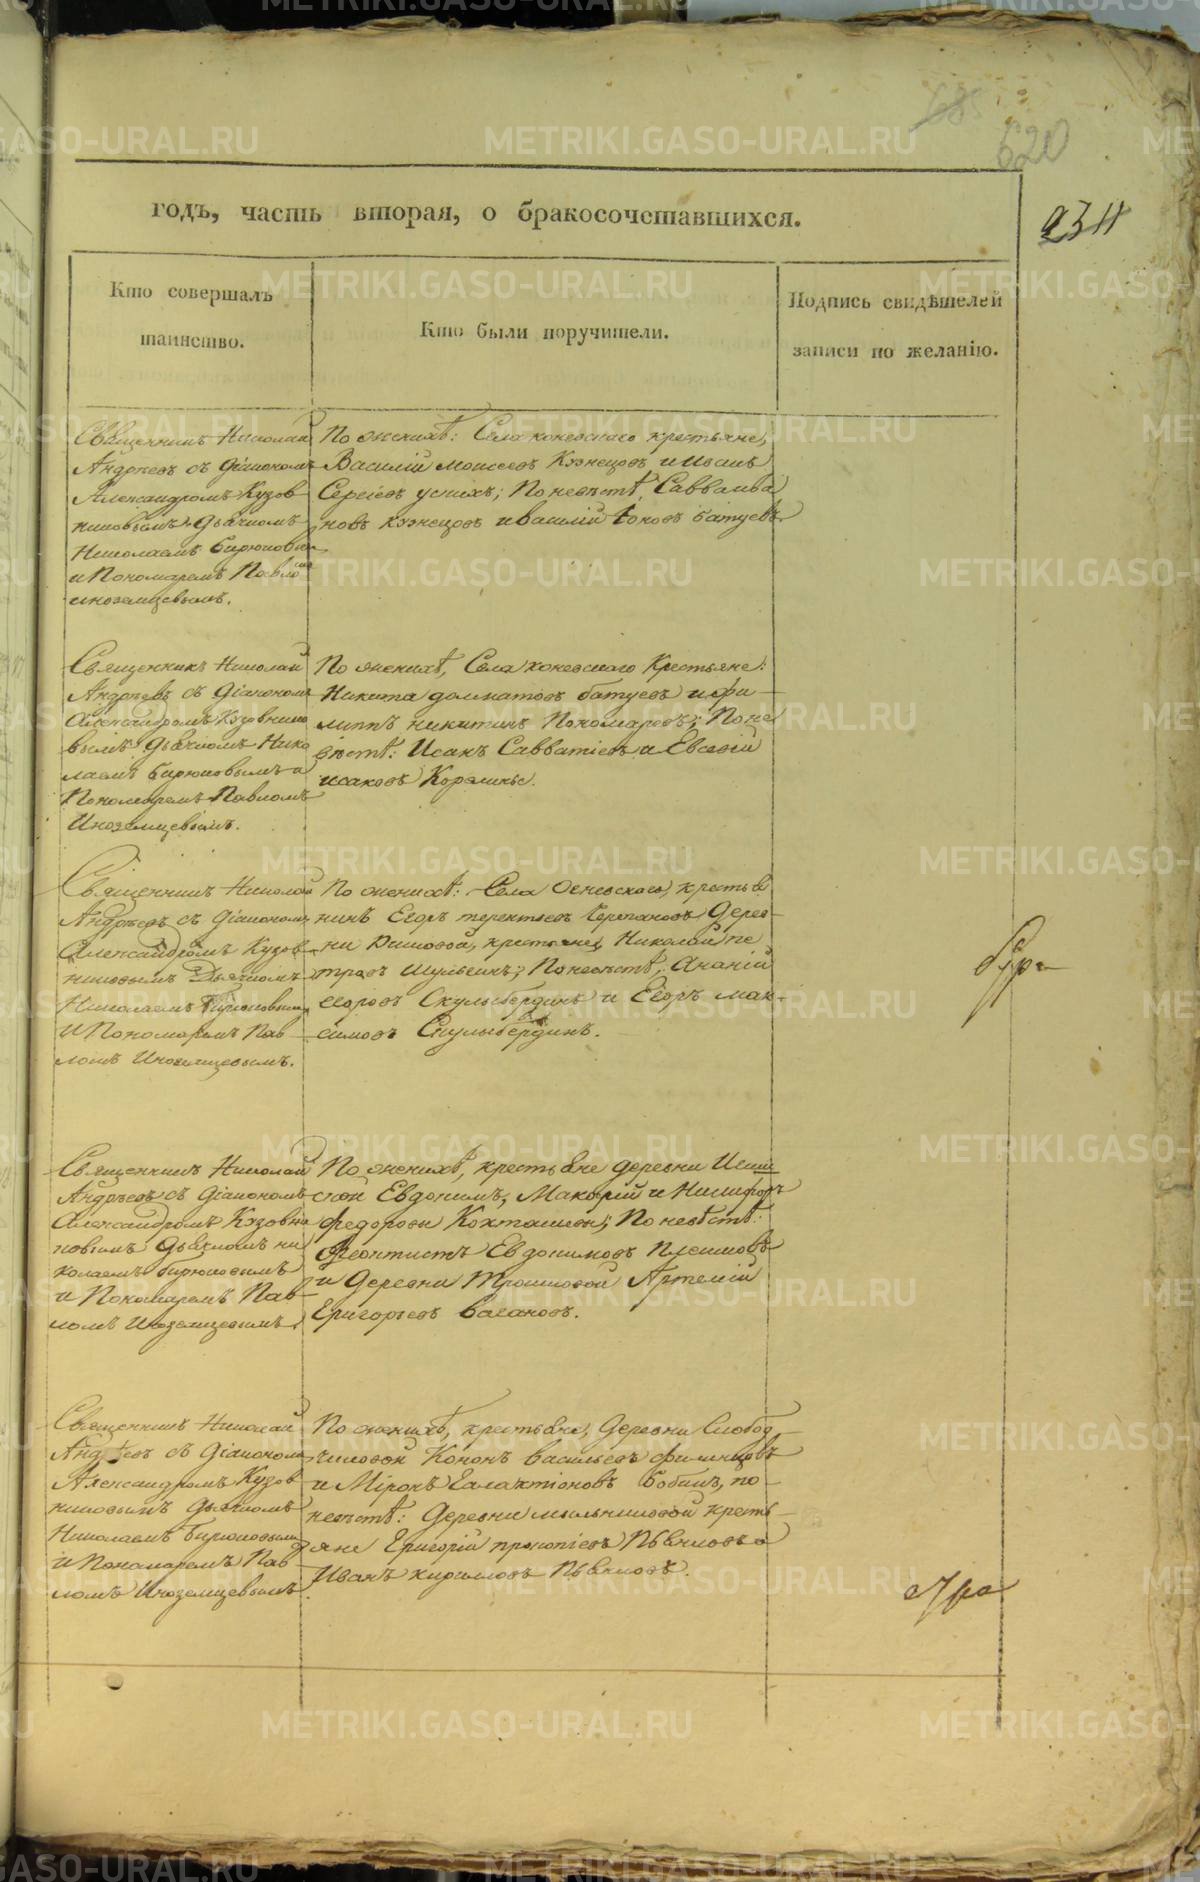 620
годъ, часть вторая, о бракосочетавшихся.
234
Кто совершалъ
таинство.
Кто были поручители.
Подпись свидѣтелей
записи по желанію.
Священникъ Николай
Андреевъ съ діакономъ
Александромъ Кузов
никовымъ дьячкомъ
Николаемъ Бирюковым
и Пономаремъ Павло
иноземцевымъ.
По женихѣ: Села коневскаго крестьяне,
Василій моисеевъ Кузнецовъ и иванъ
Сергіевъ успихъ; По невѣстѣ, Савва ива
новъ кузнецовъ и василій іоновъ батуевъ.
Священникъ Николай
Андреевъ съ діакономъ
Александромъ Кузовнико
вымъ дьячкомъ Нико
лаемъ бирюковымъ и
Пономаремъ Павломъ
Иноземцевымъ.
По женихѣ, Села коневскаго Крестьяне:
Никита долматовъ батуевъ и фи–
липпъ никитинъ Пономаревъ; По не
вѣстѣ: Исакъ Савватіевъ и Евсевій
исаковъ Корелины.
Священникъ Николай
Андреевъ съ діакономъ
Александромъ Кузов–
никовымъ Дьячкомъ
Николаемъ Бирюковымъ
и Пономаремъ Пав–
ломъ Иноземцевымъ.
По женихѣ: Села Огневскаго, крестья
нинъ Егоръ терентьевъ Черепановъ Дерев–
ни крестьянинъ Николай пе
тровъ По невѣстѣ, Ананій
егоровъ Скулыбердинъ и Егоръ мак–
симовъ Скулыбердинъ.
Священникъ Николай
Андреевъ съ діакономъ
Александромъ Кузовни
ковымъ дьячкомъ ни
колаемъ бирюковымъ
и Пономаремъ Пав–
ломъ Иноземцевымъ.
По женихѣ, крестьяне деревни
Евдокимъ, Макарій и Никифоръ
федоровы По невѣстѣ:
феоктистъ Евдокимовъ Плешковъ
и Деревни Трошковой Артемій
Григорьевъ Вагановъ.
Священникъ Николай
Андреевъ съ діакономъ
Александромъ Кузов
никовымъ дьячкомъ
Николаемъ бирюковымъ
и Пономаремъ Пав
ломъ Иноземцевымъ.
По женихѣ, крестьяне, Деревни Слобод–
чиковой Кононъ васильевъ
и Миронъ Галактіоновъ бобинъ, по
невѣстѣ: Деревни мыльниковой кресть–
яне Григорій прокопіевъ Пьянковъ и
Иванъ кириловъ Пьянковъ.